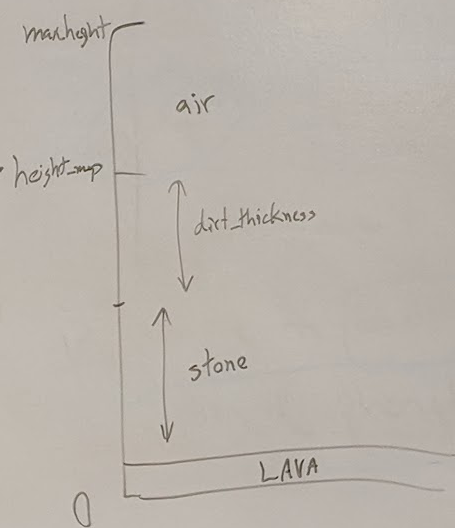 maxheight
air
height_map
dirt_thickness
stone
LAVA
0